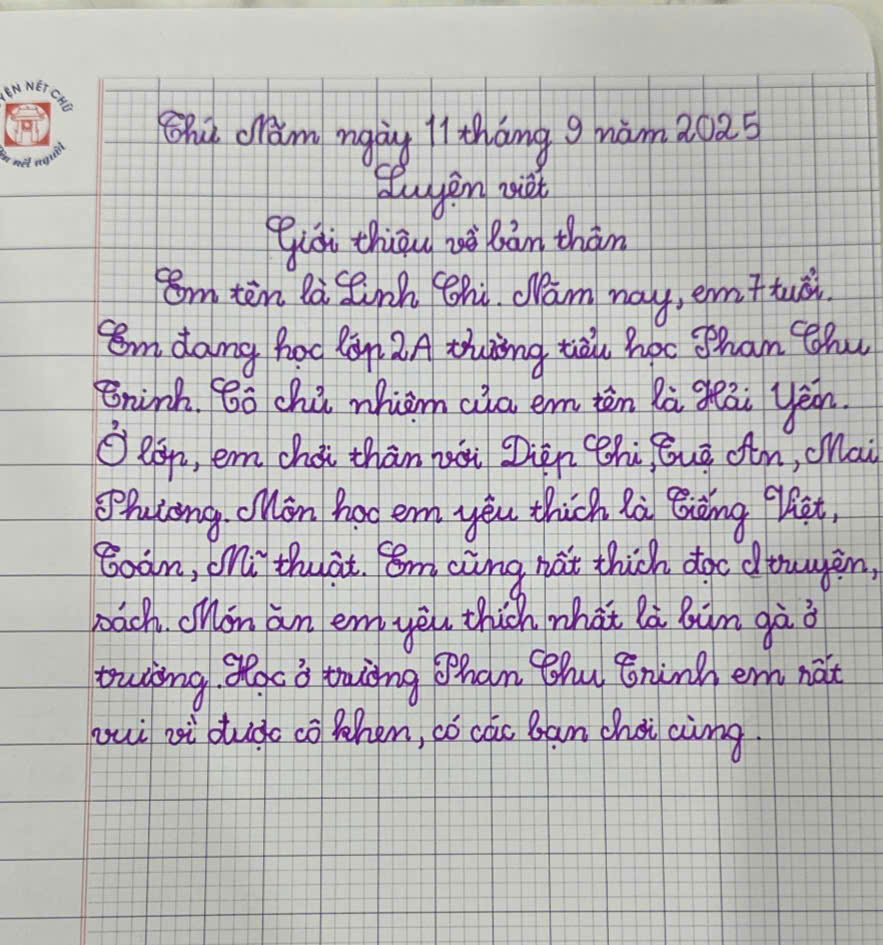 YỆN NÉT CHỮ
èn nết người
Thứ Năm ngày 11 tháng 9 năm 2025
Luyện viết
Giới thiệu về bản thân
Em tên là Linh Chi. Năm nay, em 7 tuổi.
Em đang học lớp 2A trường tiểu học Phan Chu
Trinh. Cô chủ nhiệm của em tên là Hải Yến.
Ở lớp, em chơi thân với Diệp Chi, Tuệ An, Mai
Phương. Môn học em yêu thích là Tiếng Việt,
Toán, Mĩ thuật. Em cũng rất thích đọc truyện,
sách. Món ăn em yêu thích nhất là bún gà ở
trường. Học ở trường Phan Chu Trinh em rất
vui vì được cô khen, có các bạn chơi cùng.